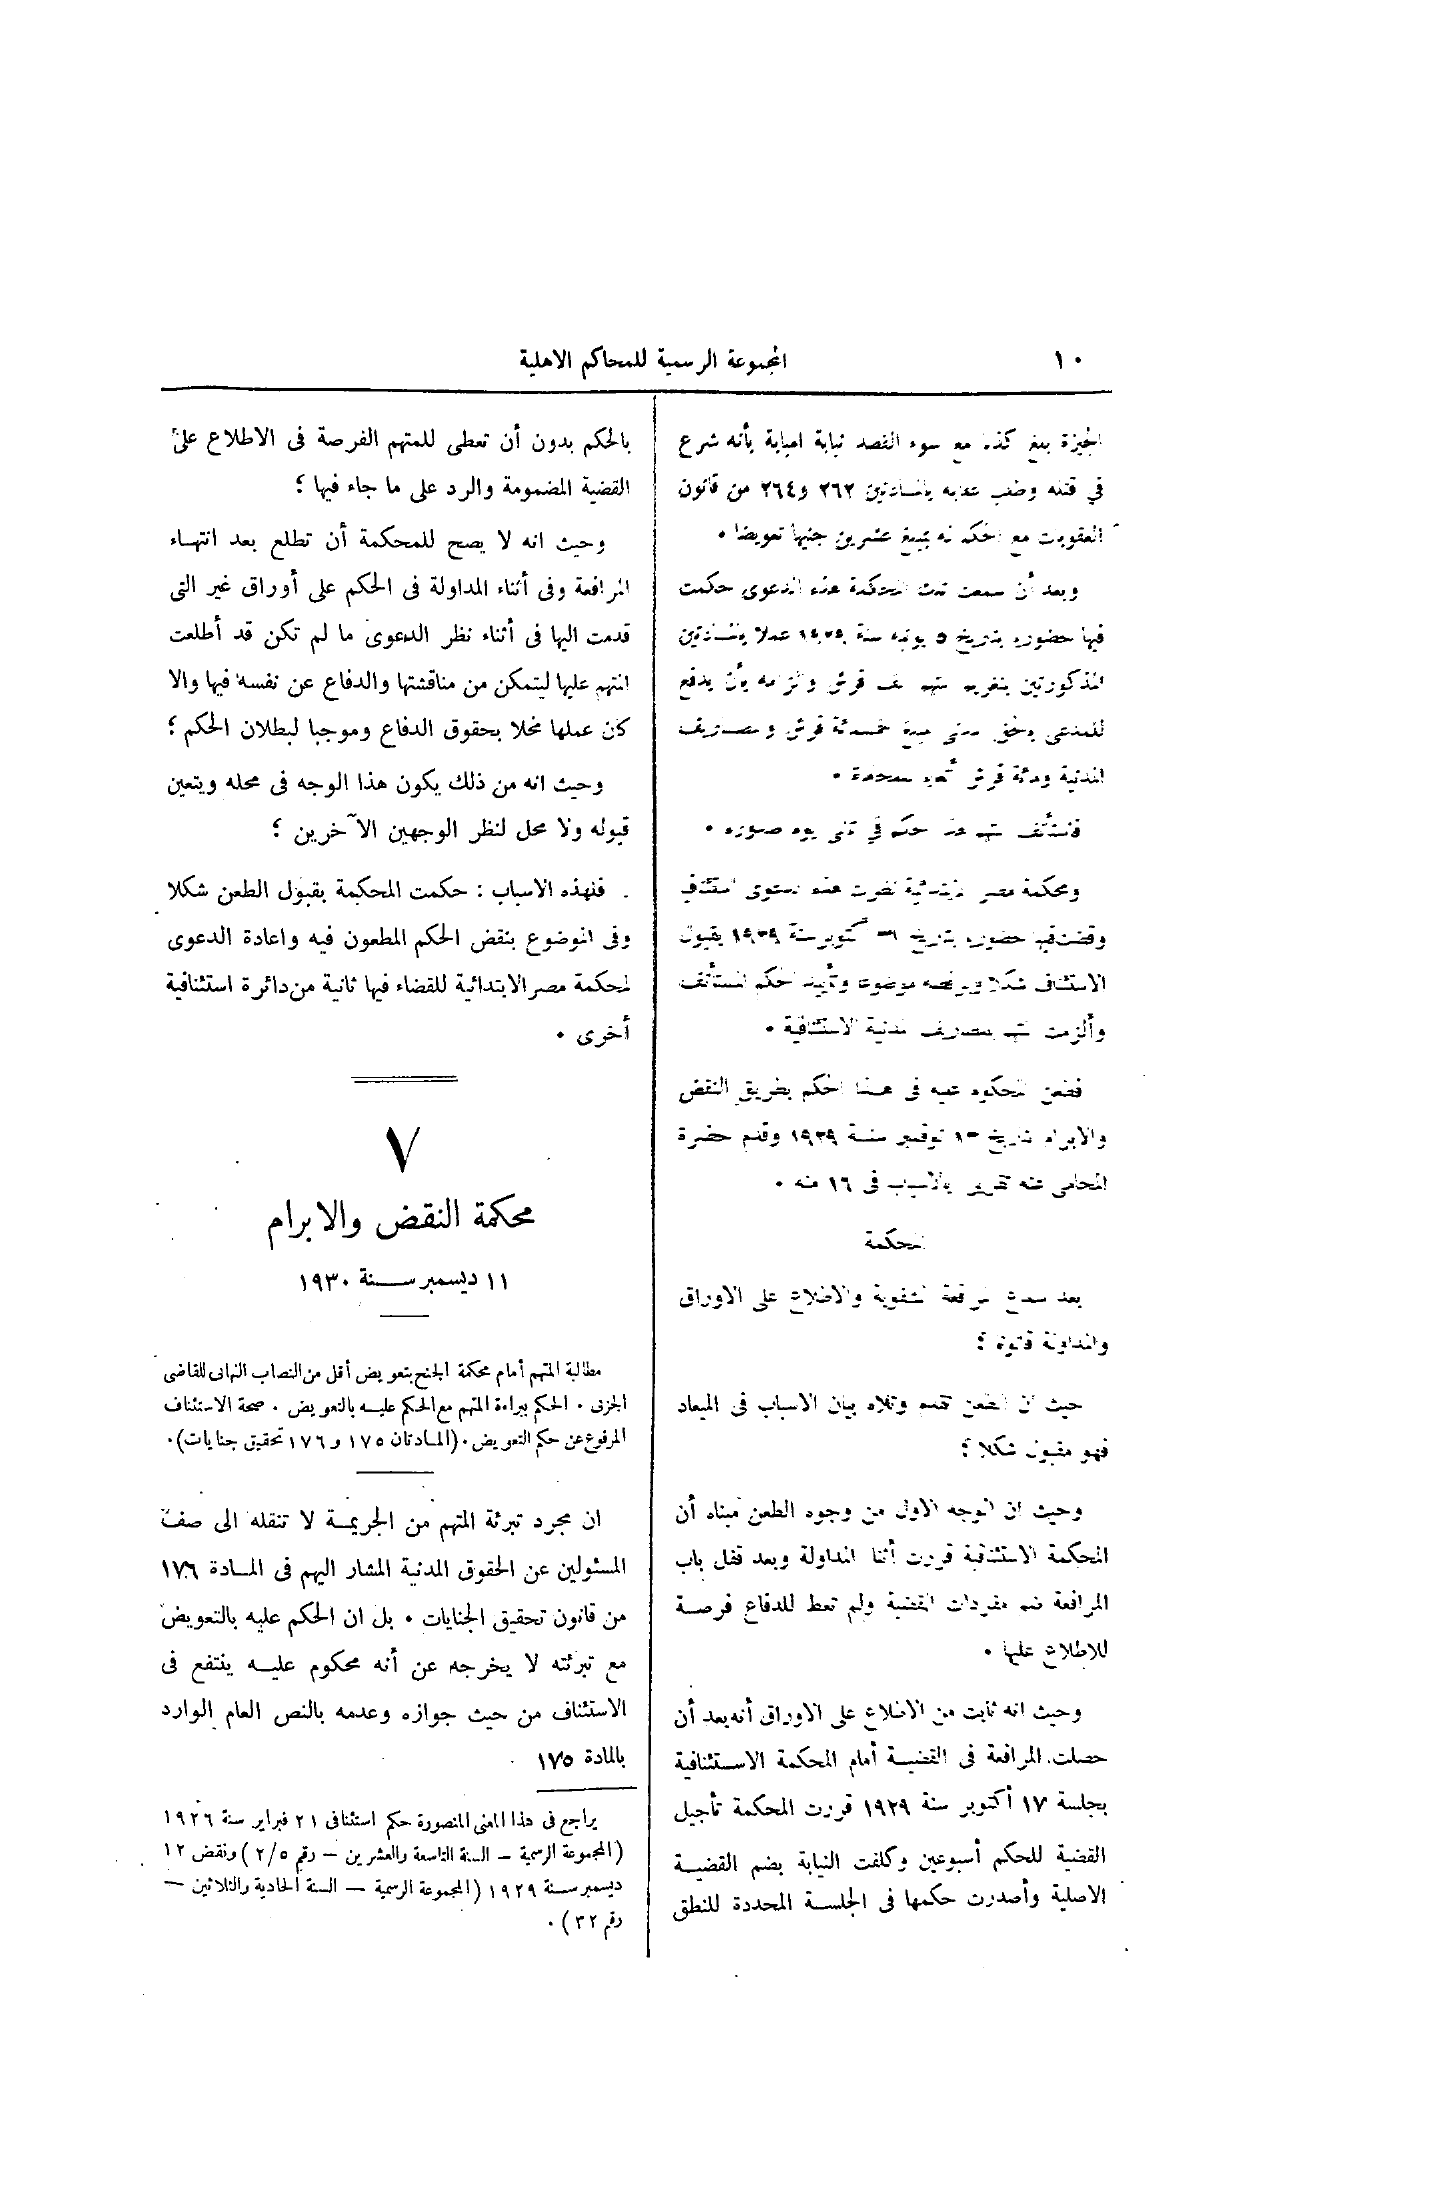 ١٠
المجموعة الرسمية للمحاكم الاهلية
الجيزة بلغ كذبا مع سوء القصد نيابة امبابة بأنه شرع
في قتله وطلب عقابه بالمادتين ٢٦٢ و٢٦٤ من قانون
العقوبات مع الحكم له بمبلغ عشرين جنيها تعويضا ٠
وبعد أن سمعت تلك المحكمة هذه الدعوى حكمت
فيها حضوريا بتاريخ ٥ يونيه سنة عملا بالمادتين
المذكورتين بتغريم المتهم قرش والزامه بأن يدفع
للمدعى بحق مدنى مبلغ خمسمائة قرش والمصاريف
المدنية ومائة قرش أتعاب محاماة ٠
فاستأنف المتهم هذا الحكم في ثانى يوم صدوره ٠
ومحكمة مصر الابتدائية نظرت هذه الدعوى استئنافيا
وقضت فيها حضوريا بتاريخ ٣١ أكتوبر سنة ١٩٢٩ بقبول
الاستئناف شكلا وبرفضه موضوعا وتأييد الحكم المستأنف
وألزمت المتهم بمصاريف المدنية الاستئنافية ٠
فطعن المحكوم عليه فى هذا الحكم بطريق النقض
والابرام بتاريخ نوفمبر سنة ١٩٢٩ وقدم حضرة
المحامى عنه تقريرا بالأسباب فى ١٦ منه ٠
المحكمة
بعد سماع المرافعة الشفوية والاطلاع على الاوراق
والمداولة قانونا ؛
حيث ان الطعن تقدم وتلاه بيان الاسباب فى الميعاد
فهو مقبول شكلا ؛
وحيث ان الوجه الاول من وجوه الطعن مبناه أن
المحكمة الاستئنافية قررت أثناء المداولة وبعد قفل باب
المرافعة ضم مفردات القضية ولم تعط للدفاع فرصة
للاطلاع عليها ٠
وحيث انه ثابت من الاطلاع على الاوراق أنه بعد أن
حصلت المرافعة فى القضية أمام المحكمة الاستئنافية
بجلسة ١٧ أكتوبر سنة ١٩٢٩ قررت المحكمة تأجيل
القضية للحكم أسبوعين وكلفت النيابة بضم القضية
الاصلية وأصدرت حكمها فى الجلسة المحددة للنطق
بالحكم بدون أن تعطى للمتهم الفرصة فى الاطلاع على
القضية المضمومة والرد على ما جاء فيها ؛
وحيث انه لا يصح للمحكمة أن تطلع بعد انتهاء
المرافعة وفى أثناء المداولة فى الحكم على أوراق غير التى
قدمت اليها فى أثناء نظر الدعوى ما لم تكن قد أطلعت
المتهم عليها ليتمكن من مناقشتها والدفاع عن نفسه فيها والا
كان عملها مخلا بحقوق الدفاع وموجبا لبطلان الحكم ؛
وحيث انه من ذلك يكون هذا الوجه فى محله ويتعين
قبوله ولا محل لنظر الوجهين الآخرين ؛
فلهذه الاسباب : حكمت المحكمة بقبول الطعن شكلا
وفى الموضوع بنقض الحكم المطعون فيه واعادة الدعوى
لمحكمة مصر الابتدائية للقضاء فيها ثانية من دائرة استئنافية
أخرى ٠
٧
محكمة النقض والابرام
١١ ديسمبر سنة ١٩٣٠
مطالبة المتهم أمام محكمة الجنح بتعويض أقل من النصاب النهائى للقاضى
الجزئى ٠ الحكم ببراءة المتهم مع الحكم عليه بالتعويض ٠ صحة الاستئناف
المرفوع عن حكم التعويض ٠ (المادتان ١٧٥ و ١٧٦ تحقيق جنايات) ٠
ان مجرد تبرئة المتهم من الجريمة لا تنقله الى صف
المسئولين عن الحقوق المدنية المشار اليهم فى المادة ١٧٦
من قانون تحقيق الجنايات ٠ بل ان الحكم عليه بالتعويض
مع تبرئته لا يخرجه عن أنه محكوم عليه ينتفع فى
الاستئناف من حيث جوازه وعدمه بالنص العام الوارد
بالمادة ١٧٥
يراجع فى هذا المعنى المنصورة حكم استئنافى ٢١ فبراير سنة ١٩٢٦
(المجموعة الرسمية — السنة التاسعة والعشرين — رقم ٢/٥) ونقض ١٢
ديسمبر سنة ١٩٢٩ (المجموعة الرسمية — السنة الحادية والثلاثين —
رقم ٣٢) ٠